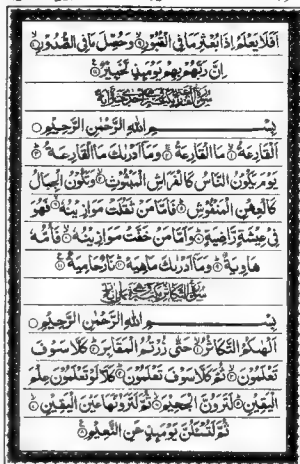 اَفَلَا يَعْلَمُ اِذَا بُعْثِرَ مَا فِي الْقُبُوْرِ ۙ وَحُصِّلَ مَا فِي الصُّدُوْرِ ۙ
اِنَّ رَبَّهُمْ بِهِمْ يَوْمَئِذٍ لَّخَبِيْرٌ
بِسْمِ اللهِ الرَّحْمٰنِ الرَّحِيْمِ
اَلْقَارِعَةُ ۙ مَا الْقَارِعَةُ ۚ وَمَآ اَدْرٰىكَ مَا الْقَارِعَةُ ؕ
يَوْمَ يَكُوْنُ النَّاسُ كَالْفَرَاشِ الْمَبْثُوْثِ ۙ وَتَكُوْنُ الْجِبَالُ
كَالْعِهْنِ الْمَنْفُوْشِ ؕ فَاَمَّا مَنْ ثَقُلَتْ مَوَازِيْنُهٗ ۙ فَهُوَ
فِيْ عِيْشَةٍ رَّاضِيَةٍ ؕ وَاَمَّا مَنْ خَفَّتْ مَوَازِيْنُهٗ ۙ فَاُمُّهٗ
هَاوِيَةٌ ؕ وَمَآ اَدْرٰىكَ مَاهِيَهْ ؕ نَارٌ حَامِيَةٌ
بِسْمِ اللهِ الرَّحْمٰنِ الرَّحِيْمِ
اَلْهٰىكُمُ التَّكَاثُرُ ۙ حَتّٰى زُرْتُمُ الْمَقَابِرَ ؕ كَلَّا سَوْفَ
تَعْلَمُوْنَ ۙ ثُمَّ كَلَّا سَوْفَ تَعْلَمُوْنَ ؕ كَلَّا لَوْ تَعْلَمُوْنَ عِلْمَ
الْيَقِيْنِ ؕ لَتَرَوُنَّ الْجَحِيْمَ ۙ ثُمَّ لَتَرَوُنَّهَا عَيْنَ الْيَقِيْنِ ۙ
ثُمَّ لَتُسْـَٔلُنَّ يَوْمَئِذٍ عَنِ النَّعِيْمِ